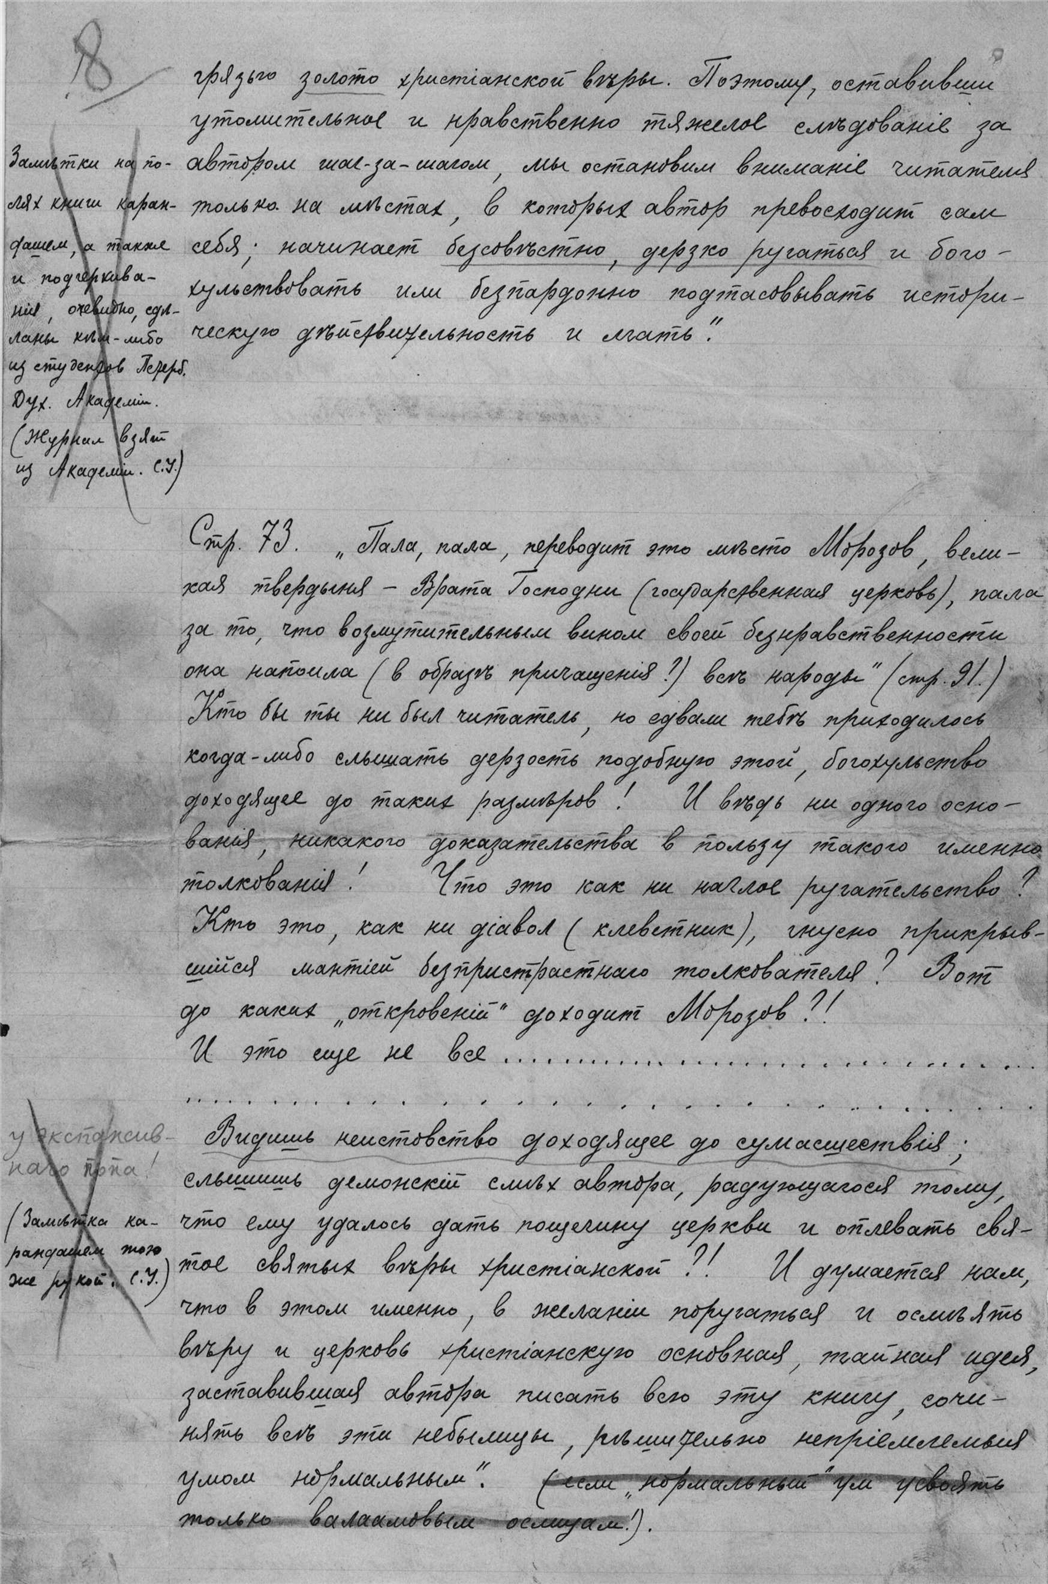 8
грязью золото христіанской вѣры. Поэтому, оставивши
утомительное и нравственно тяжелое слѣдованіе за
автором шаг-за-шагом, мы остановим вниманіе читателя
только на мѣстах, в которых автор превосходит сам
себя; начинает безсовѣстно, дерзко ругаться и бого-
хульствовать или безпардонно подтасовывать истори-
ческую дѣйствительность и лгать".
Замѣтки на по-
лях книги каран-
дашем, а также
и подчеркива-
нія, очевидно, сдѣ-
ланы кѣм-либо
из студентов Петерб.
Дух. Академіи.
(Журнал взят
из Академіи. С.У.)
Стр. 73. „Пала, пала, переводит это мѣсто Морозов, вели-
кая твердыня – Врата Господни (государственная церковь), пала
за то, что возмутительным вином своей безнравственности
она напоила (в образѣ причащенія?) всѣ народы" (стр. 91.)
Кто бы ты ни был читатель, но едвали тебѣ приходилось
когда-либо слышать дерзость подобную этой, богохульство
доходящее до таких размѣров! И вѣдь ни одного осно-
ванія, никакого доказательства в пользу такого именно
толкованія! Что это как ни наглое ругательство?
Кто это, как ни діавол (клеветник), гнусно прикрыв-
шійся мантіей безпристрастнаго толкователя? Вот
до каких „откровеній" доходит Морозов?!
И это еще не все ..............................
..............................
Видишь неистовство доходящее до сумасшествія;
слышишь демонскій смѣх автора, радующагося тому,
что ему удалось дать пощечину церкви и оплевать свя-
тое святых вѣры христіанской?!! И думается нам,
что в этом именно, в желаніи поругаться и осмѣять
вѣру и церковь христіанскую основная, тайная идея,
заставившая автора писать всю эту книгу, сочи-
нять всѣ эти небылицы, рѣшительно непріемлемыя
умом нормальным". (если „нормальный" ум усвоять
только валаамовым ослицам!).
у экспансив-
наго попа!
(Замѣтка ка-
рандашем тою
же рукой. С.У.)